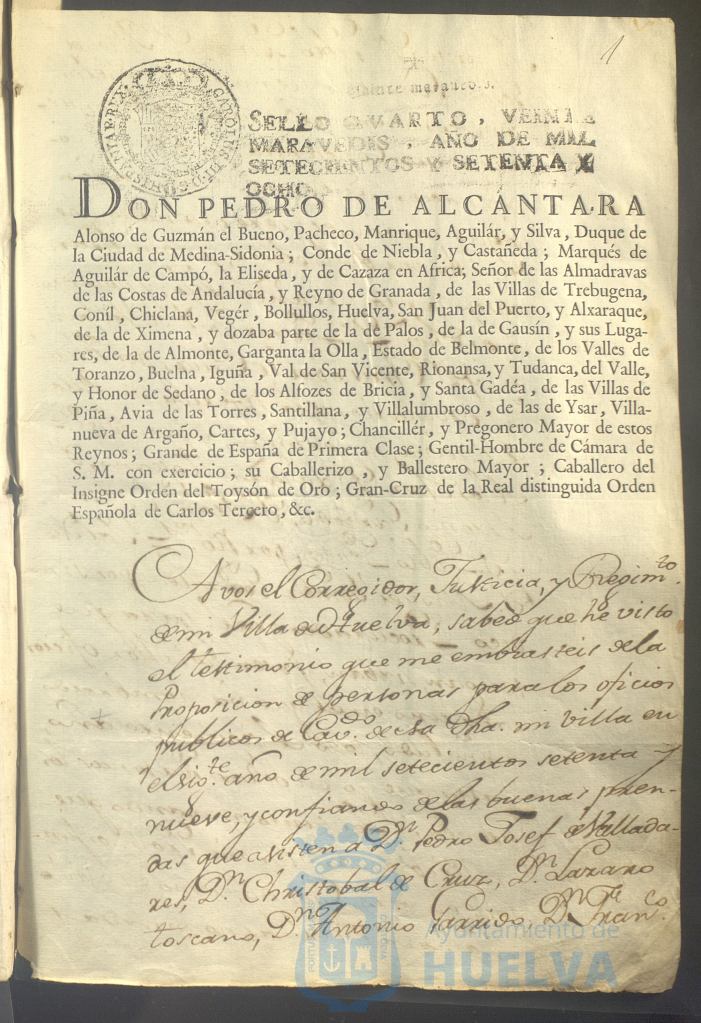 1
Quince maraved.s.
SELLO QVARTO, VEINTE
MARAVEDIS, AÑO DE MIL
SETECIENTOS Y SETENTA Y
OCHO.
DON PEDRO DE ALCANTARA
Alonso de Guzmán el Bueno, Pacheco, Manrique, Aguilár, y Silva, Duque de
la Ciudad de Medina-Sidonia; Conde de Niebla, y Castañeda; Marqués de
Aguilár de Campó, la Eliseda, y de Cazaza en Africa; Señor de las Almadravas
de las Costas de Andalucía, y Reyno de Granada, de las Villas de Trebugena,
Coníl, Chiclana, Vegér, Bollullos, Huelva, San Juan del Puerto, y Alxaraque,
de la de Ximena, y dozaba parte de la de Palos, de la de Gausín, y sus Luga-
res, de la de Almonte, Garganta la Olla, Estado de Belmonte, de los Valles de
Toranzo, Buelna, Iguña, Val de San Vicente, Rionansa, y Tudanca, del Valle,
y Honor de Sedano, de los Alfozes de Bricia, y Santa Gadéa, de las Villas de
Piña, Avia de las Torres, Santillana, y Villalumbroso, de las de Ysar, Villa-
nueva de Argaño, Cartes, y Pujayo; Chancillér, y Pregonero Mayor de estos
Reynos; Grande de España de Primera Clase; Gentil-Hombre de Cámara de
S. M. con exercicio; su Caballerizo, y Ballestero Mayor; Caballero del
Insigne Orden del Toysón de Oro; Gran-Cruz de la Real distinguida Orden
Española de Carlos Tercero, &c.
A vos el Corregidor, Justicia, y Regim.to
de mi Villa de Huelva, sabed que he visto
el testimonio que me embiasteis de la
Proposicion de personas para los oficios
publicos de Cav.do de esa dha. mi villa en
el sig.te año de mil setecientos setenta y
nueve, y confiando de las buenas pren-
das que asisten a D.n Pedro Josef de Vallada-
res, D.n Christobal de Cruz, D.n Lazaro
toscano, D.n Antonio Garrido, D.n Fran.co
Ayuntamiento de
HUELVA